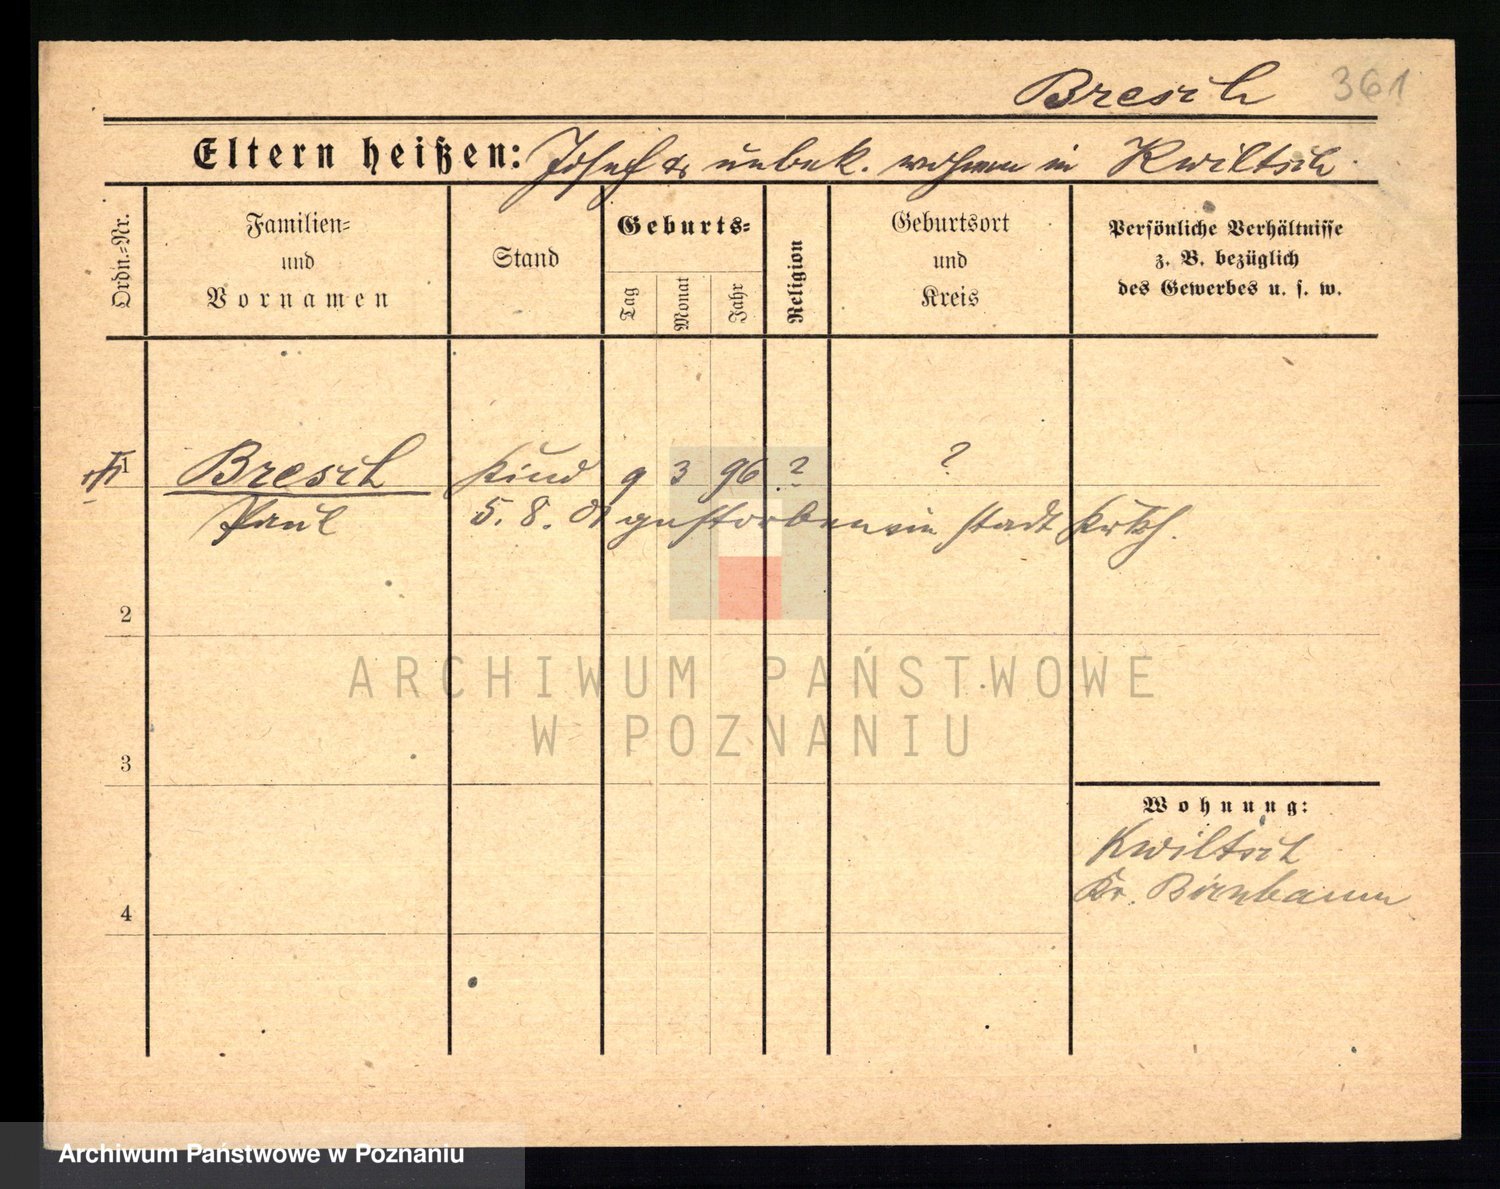 Bresch 361
Eltern heißen: Josef & unbek. wohnen in Kwiltsch.
Ordn.-Nr.
Familien-
und
Vornamen
Stand
Geburts-
Tag
Monat
Jahr
Religion
Geburtsort
und
Kreis
Persönliche Verhältnisse
z. B. bezüglich
des Gewerbes u. s. w.
1 Bresch Kind 9 3 96 ? ?
Paul 5. 8. 01 gestorben im Stadt Krkh.
2
3
4
Wohnung:
Kwiltsch
Kr. Birnbaum
ARCHIWUM PAŃSTWOWE
W POZNANIU
Archiwum Państwowe w Poznaniu